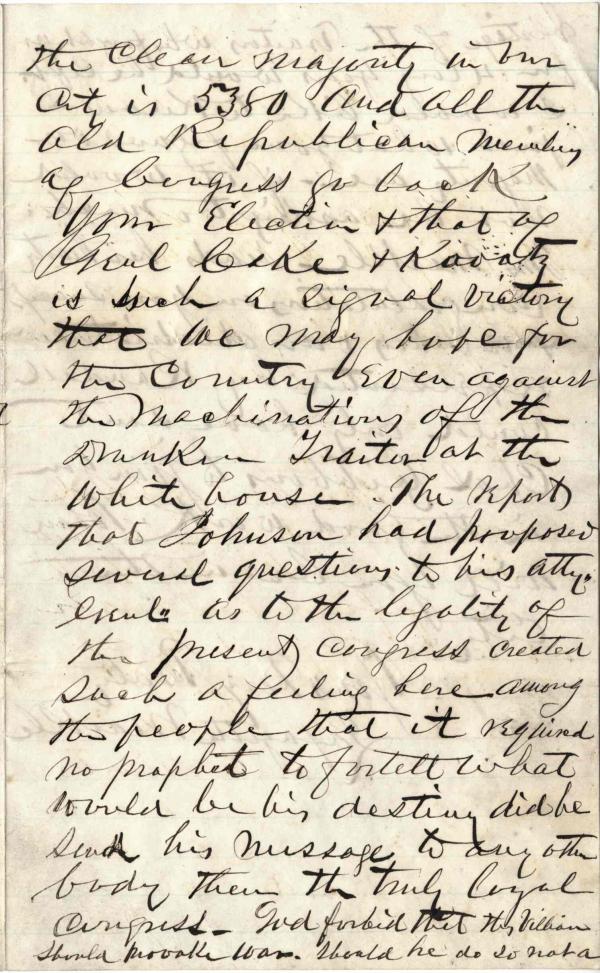 the clear majority in our
City is 5380 And all the
old Republican Members
of Congress go back
Your Election & that of
Genl Cake & Koontz
is such a signal victory
that We may hope for
the Country Even against
the Machinations of the
Drunken Traitor at the
White house. The report
that Johnson had proposed
several questions to his atty"
Genl" as to the legality of
the present Congress created
such a feeling here among
the people that it required
no prophet to fortell what
would be his destiny did he
send his Message to any other
body then the truly loyal
Congress - God forbid that this Villian
should provoke War. Should he do so not a